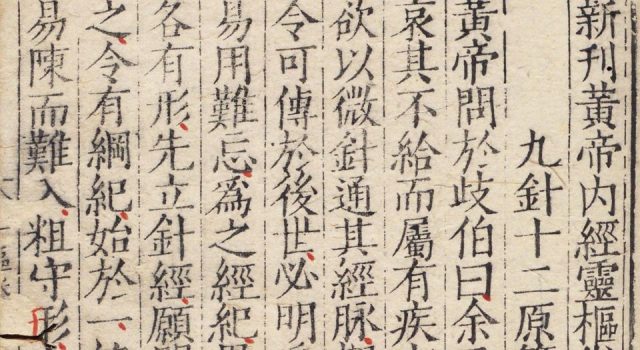 新刊黃帝内經靈樞
九針十二原
黃帝問於歧伯曰余
哀其不給而屬有疾
欲以微針通其經脉
令可傳於後世必明
易用難忘爲之經紀
各有形先立針經願
之令有綱紀始於一
易陳而難入粗守形